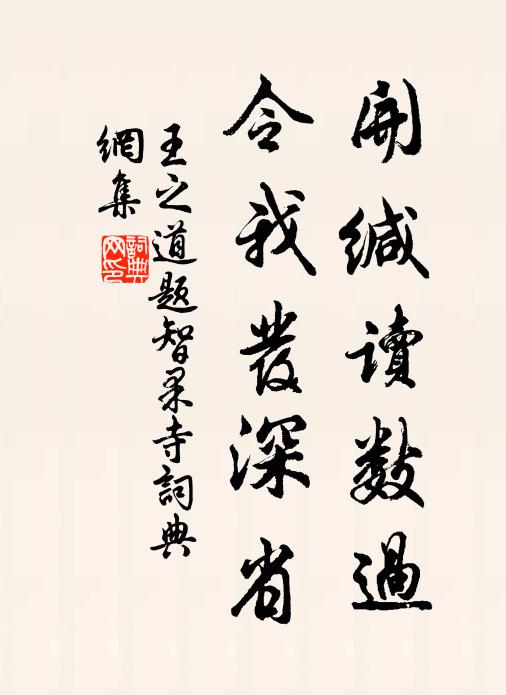 開緘讀數過
令我發深省
王之道題智果寺詞典
網集
詞典网印